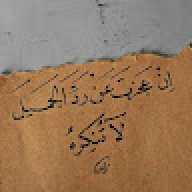 إن عجزت عن رد الجميل
لا تنكره